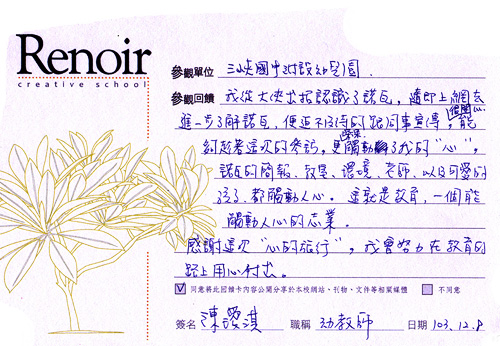 Renoir
creative school
參觀單位 三峽國中附設幼兒園.
參觀回饋 我從大俠老師認識了諾瓦，隨即上網去
進一步了解諾瓦，便迫不及待的跟同事宣導，能
夠趁著這次的參訪，更觸動了我的“心”。
諾瓦的簡報、教具、環境、老師、以及可愛的
孩子，都觸動人心。這就是教育，一個能
觸動人心的志業。
感謝這次“心的旅行”，我會努力在教育的
路上用心付出。
同意將此回饋卡內容公開分享於本校網站、刊物、文件等相關媒體 不同意
簽名 陳 淇 職稱 幼教師 日期 103.12.8